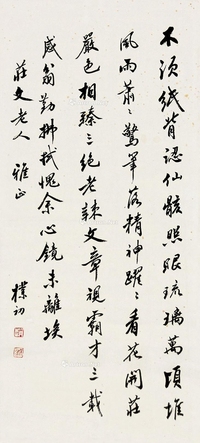 不須紙背認仙骸照眼琉璃萬頃堆
風雨蕭々驚筆落精神躍々看花開莊
嚴色相臻三絕老辣文章視霸才三載
感翁勤拂拭愧余心鏡未離埃
莊文老人 雅正
樸初